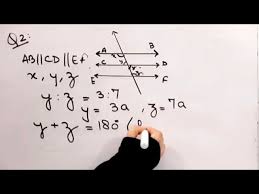 Q2:
AB||CD||EF
x, y, z
y : z = 3 : 7
y = 3a, z = 7a
y + z = 180° (
A B
C D
E F
x
y
z